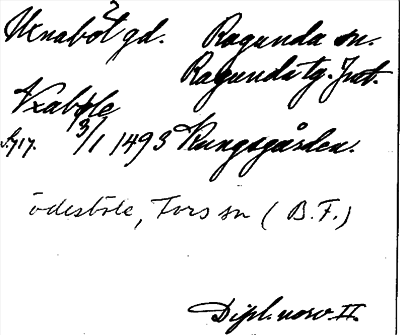 2
Uxnaböl gd. Ragunda sn.
Ragunda tg. Jmt.
Vxabøle
s. 717. 3/1 1493 Kungsgården.
ödesböle, Tors sn (B.F.)
Dipl. norv. II.